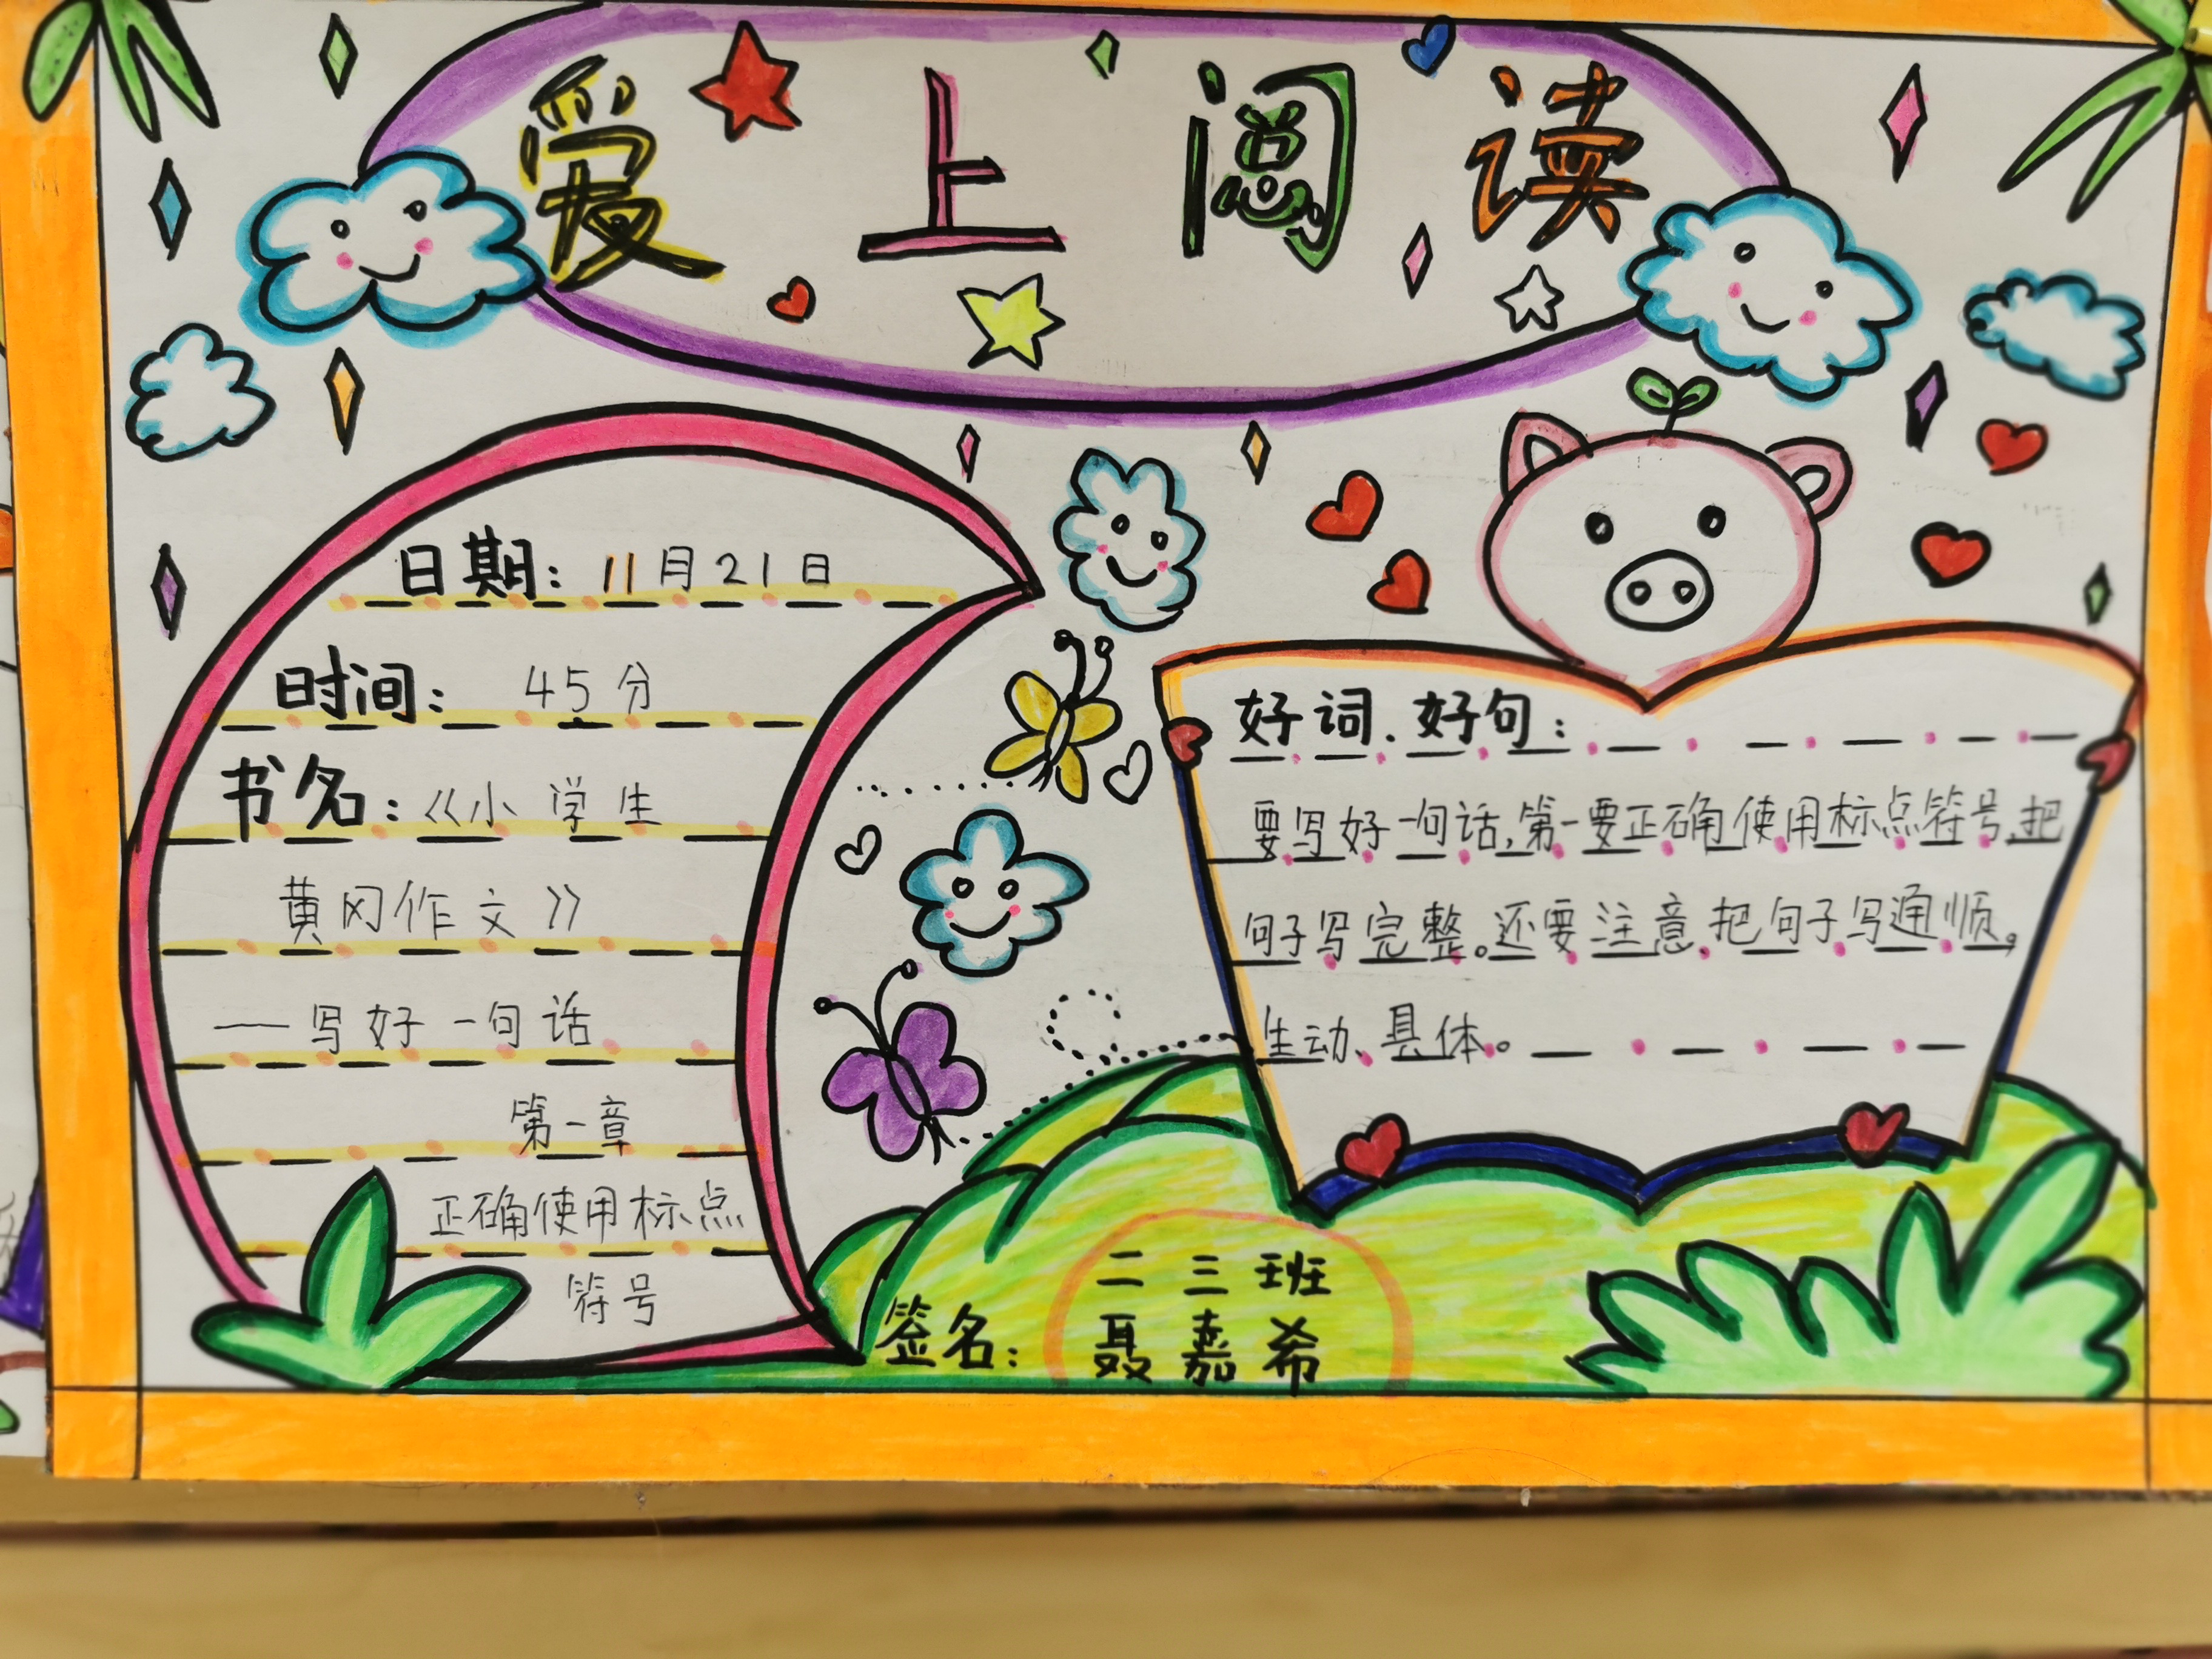 爱上阅读
日期：11月21日
时间：45分
书名：《小学生
黄冈作文》
——写好一句话
第一章
正确使用标点
符号
好词、好句：
要写好一句话，第一要正确使用标点符号，把
句子写完整。还要注意、把句子写通顺，
生动、具体。
二三班
签名：聂嘉希